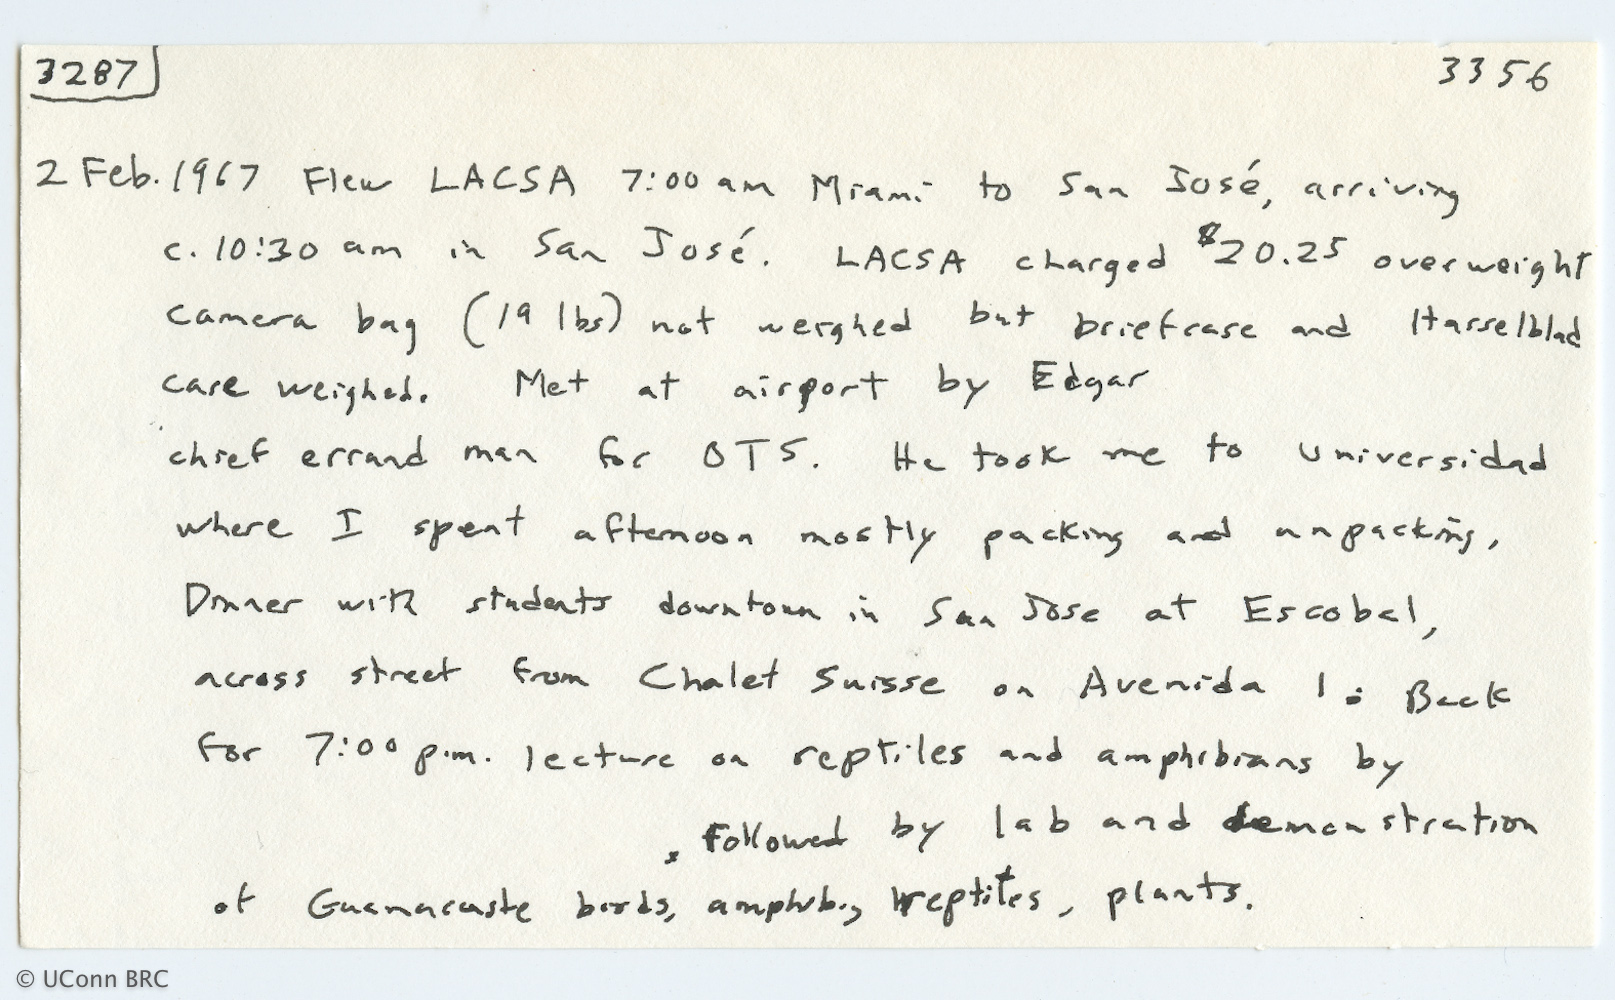 3287 3356
2 Feb. 1967 Flew LACSA 7:00 am Miami to San José, arriving
c. 10:30 am in San José. LACSA charged $20.25 overweight
camera bag (19 lbs) not weighed but briefcase and Hasselblad
case weighed. Met at airport by Edgar
chief errand man for OTS. He took me to Universidad
where I spent afternoon mostly packing and unpacking,
Dinner with students downtown in San Jose at Escobel,
across street from Chalet Suisse on Avenida 1. Back
for 7:00 p.m. lecture on reptiles and amphibians by
, followed by lab and demonstration
of Guanacaste birds, amphib., reptiles, plants.
© UConn BRC